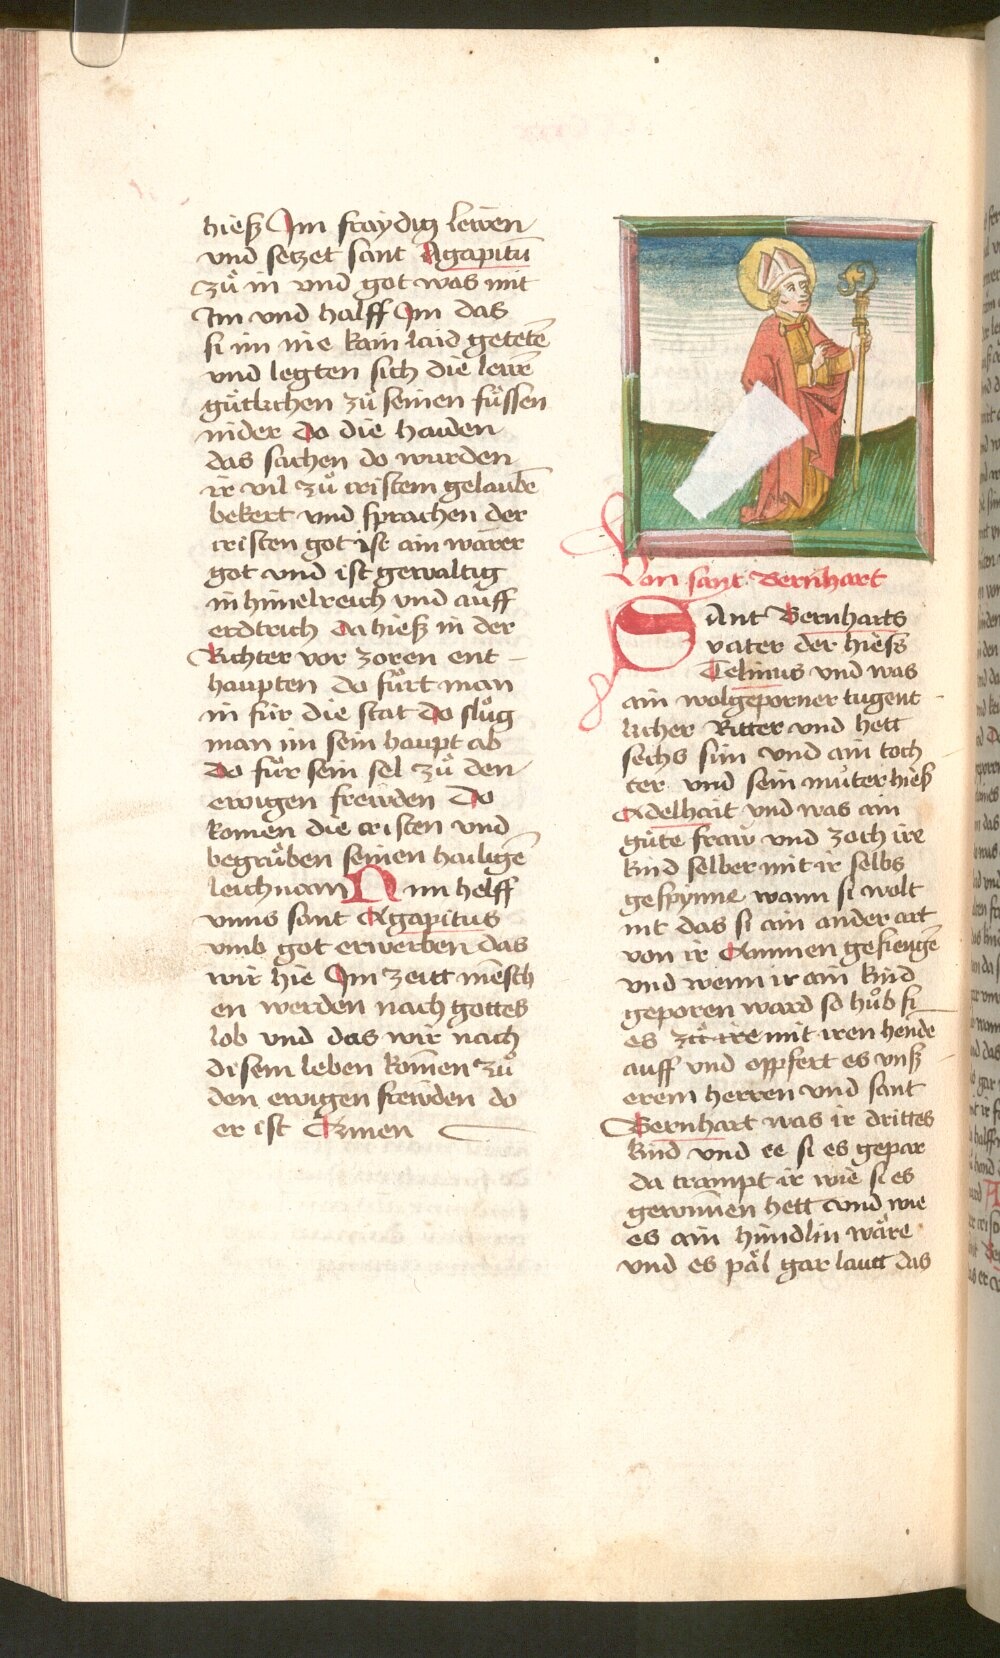 hieß Im fraydig lewen
vnd seczet sant Agapitū
zů in vnd got was mit
Im vnd halff Im das
si im nie kain laid getetē
vnd legten sich die lewē
gůtlichen zů seinen füssen
nider do die haiden
das sachen do wurden
ir vil zů cristem gelaubē
bekert vnd sprachen der
cristen got ist ain warer
got vnd ist gewaltig
in himelreich vnd auff
erdtrich Da hieß in der
Richter vor zoren ent
haupten do fůrt man
in für die stat do slůg
man im sein haupt ab
do fůr sein sel zů den
ewigen frewden Do
komen die cristen vnd
begrůben seinen hailigē
leichnam Nun helff
vnns sant Agapitus
vmb got erwerben das
wir hie Im zeitt mēsch
en werden nach gottes
lob vnd das wir nach
disem leben komen zů
den ewigen frewden do
er ist Amen
Von sant Bernhart
SAnt Bernharts
vater der hiess
Telimus vnd was
ain wolgeporner tugent
licher Ritter vnd hett
sechs sün vnd ain toch
ter vnd sein můter hieß
Adelhait vnd was ain
gůte fraw vnd zoch ire
kind selber mit ir selbs
gespynne wann si wolt
nit das si ain ander art
von ir Ammen gefiengē
vnd wenn ir ain kind
geporen ward so hůb si
es mit iren hendē
auff vnd oppfert es vnß
erem herren vnd sant
Bernhart was ir drittes
kind vnd ee si es gepar
da trampt ir wie si es
gewunnen hett vnd wie
es ain hündlin wäre
vnd es päl gar lautt das